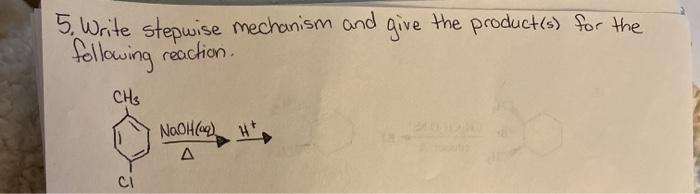 5. Write stepwise mechanism and give the product(s) for the
following reaction.
CH3
NaOH(aq) H+
Δ
Cl